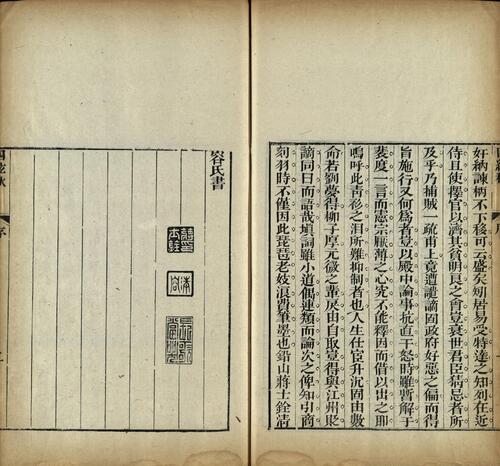 奸納諫柄不下移可云盛矣矧居易受特達之知列在近
侍且使擢官以濟其貧明良之會豈衰世君臣猜忌者所
及乎乃捕賊一疏甫上竟遭譴謫固政府好惡之偏而得
旨施行又何爲者豈以殿中論事抗直干怒時雖暫解于
裴度一言而憲宗厭薄之心究不能釋因而借以出之耶
嗚呼此靑衫之泪所難抑制者也人生仕宦升沉固由數
命若劉夢得柳子厚元微之輩戾由自取豈得與江州貶
謫同日而語哉塡詞雖小道偶連類而論次之俾知引商
刻羽時不僅因此琵琶老妓浪費筆墨也鉛山蔣士銓淸
容氏書
四絃秋
序